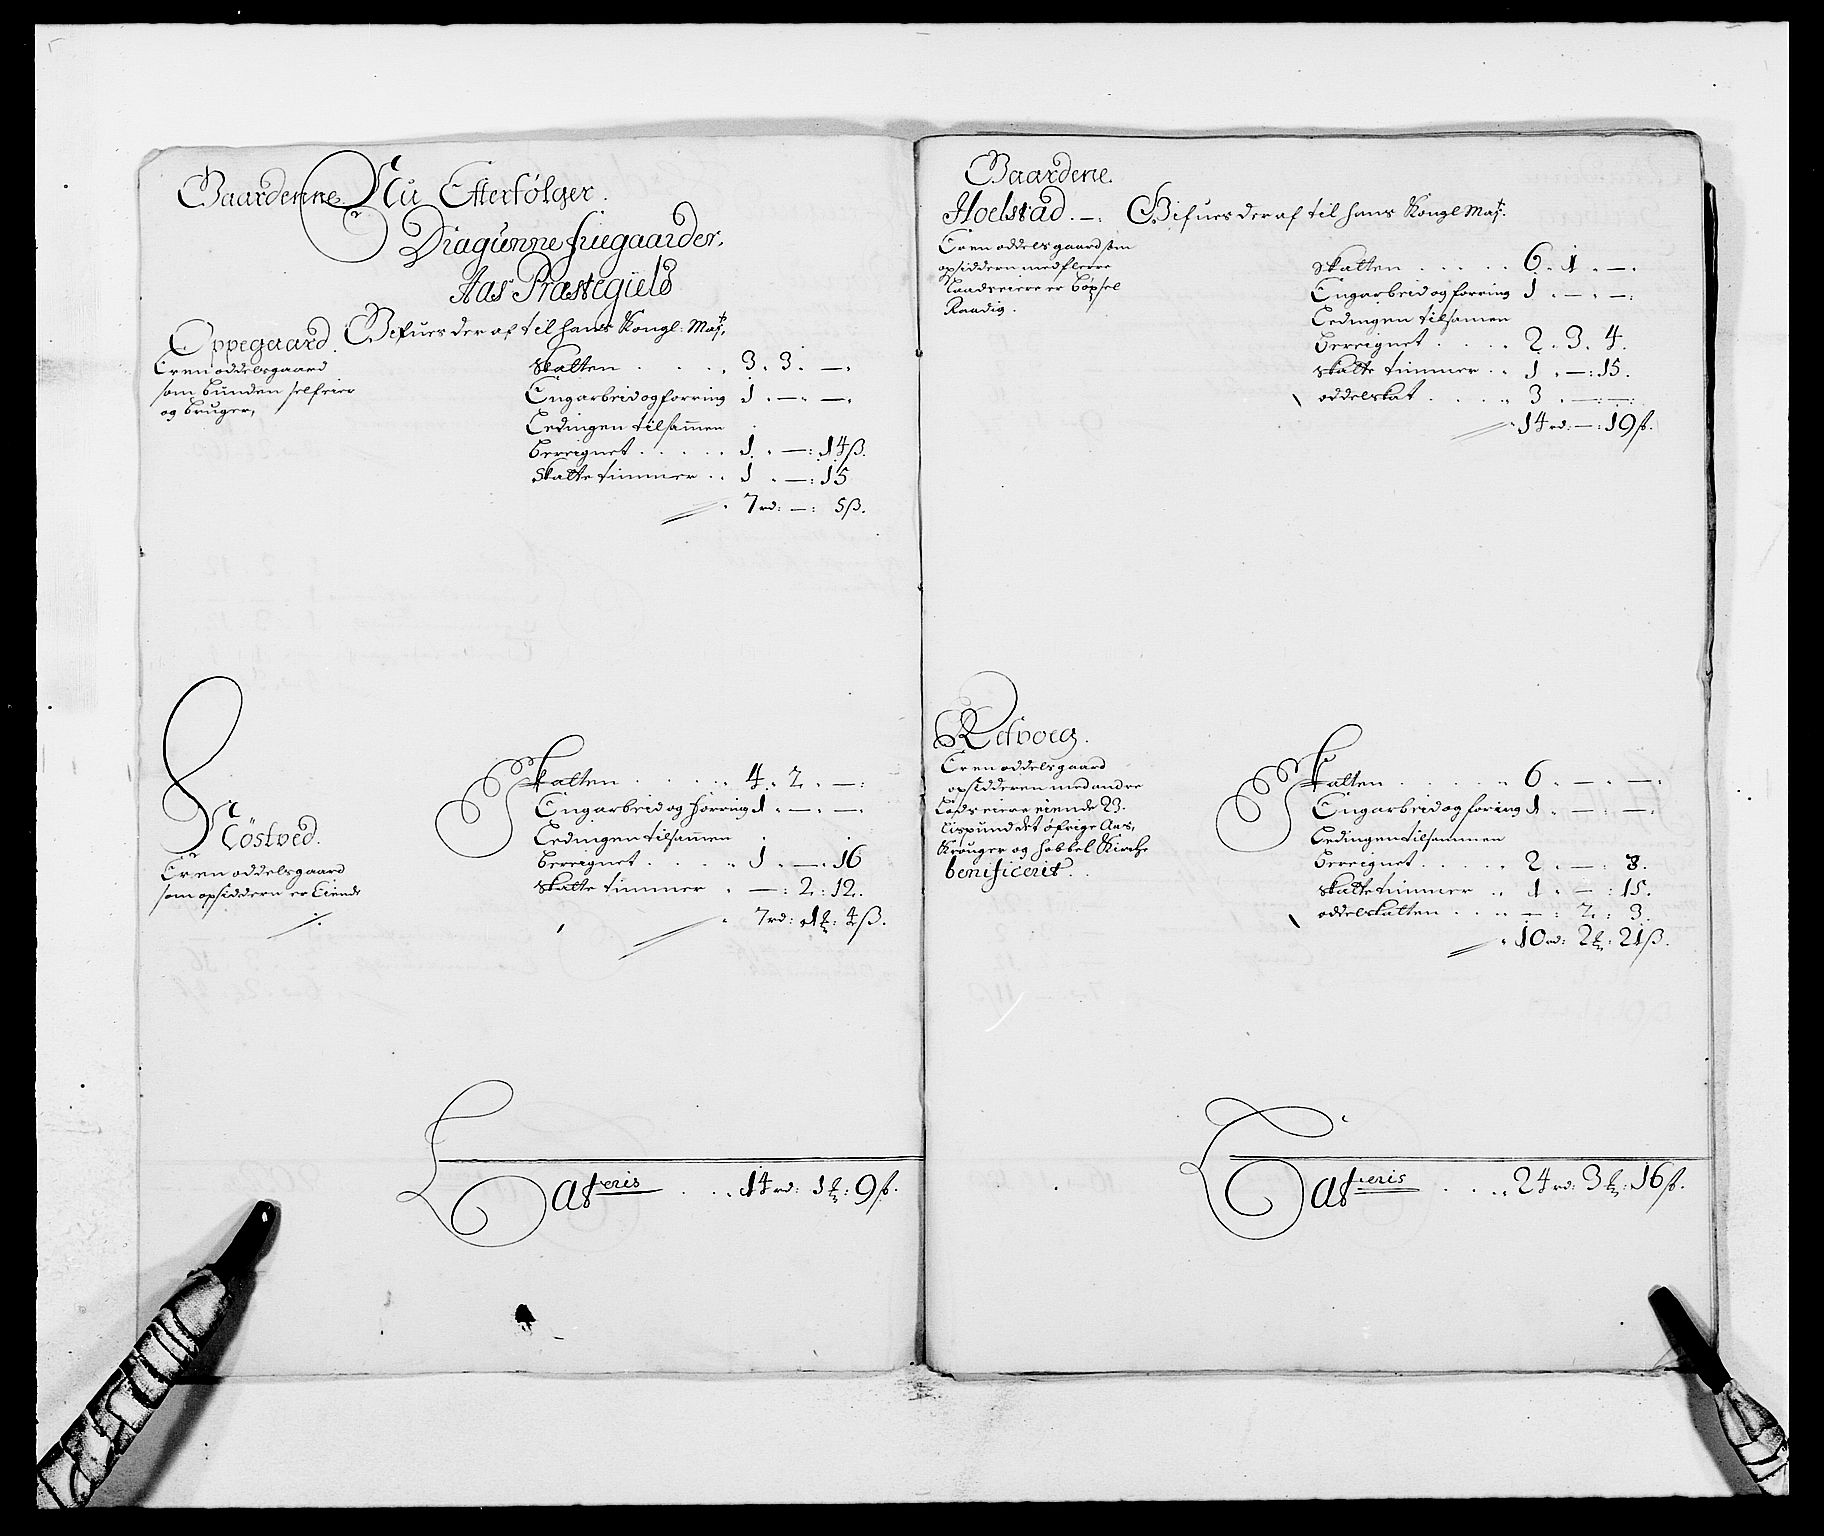 Gaardenne. Nu Efterfölger.
Dragunne friegaarder.
Aas Præstegield
Oppegaard. Gifues der af til hans Kongl: Maÿt.
Er en oddelsgaard
som bunden selfeier
og bruger,
Skatten . . . . . 3. 3. —.
Engarbeid og forring 1. —. —.
Ledingen tilsamen
beregnet . . . . . 1. —: 14ß.
Skatte timmer . . 1. —: 15
7rd: —: 5ß.
Nöstved.
Er en oddelsgaard
som opsiddern er Eiende
Skatten . . . . . 4. 2. —:
Engarbeid og forring 1. —. —.
Ledingen tilsamen
beregnet . . . . . 1. —. 16
Skatte timmer . —: 2: 12.
7rd: 1 : 4ß.
Lateris . . . 14rd: 1 : 9ß.
Gaardene.
Holstad. —. Gifues der af til hans Kongl Maÿt.
Er en oddelsgaard som
opsiddern med flerre
Laadseiere er böxsel
Raadig.
Skatten . . . . . 6. 1. —.
Engarbeid og forring 1. —. —:
Ledingen tilsamen
beregnet . . . . 2. 3. 4.
Skatte timmer . . 1. —: 15.
oddelskat . . . . 3. —:—:
14rd: —: 19ß.
Er en oddelsgaard
opsidderen med andre
Lodseiere eiende 23.
Lispund det öfrige Aas,
Kroager og hobbel Kirche
benificerit.
Skatten . . . . . 6. —. —:
Engarbeid og foring 1. —. —.
Ledingen tilsammen
beregnet . . . . . 2. —. 8.
Skatte timmer . . 1. —: 15.
oddelskatten . . . —: 2: 3.
10rd: 2 : 21ß.
Lateris . . . . 24rd: 3 : 16ß.